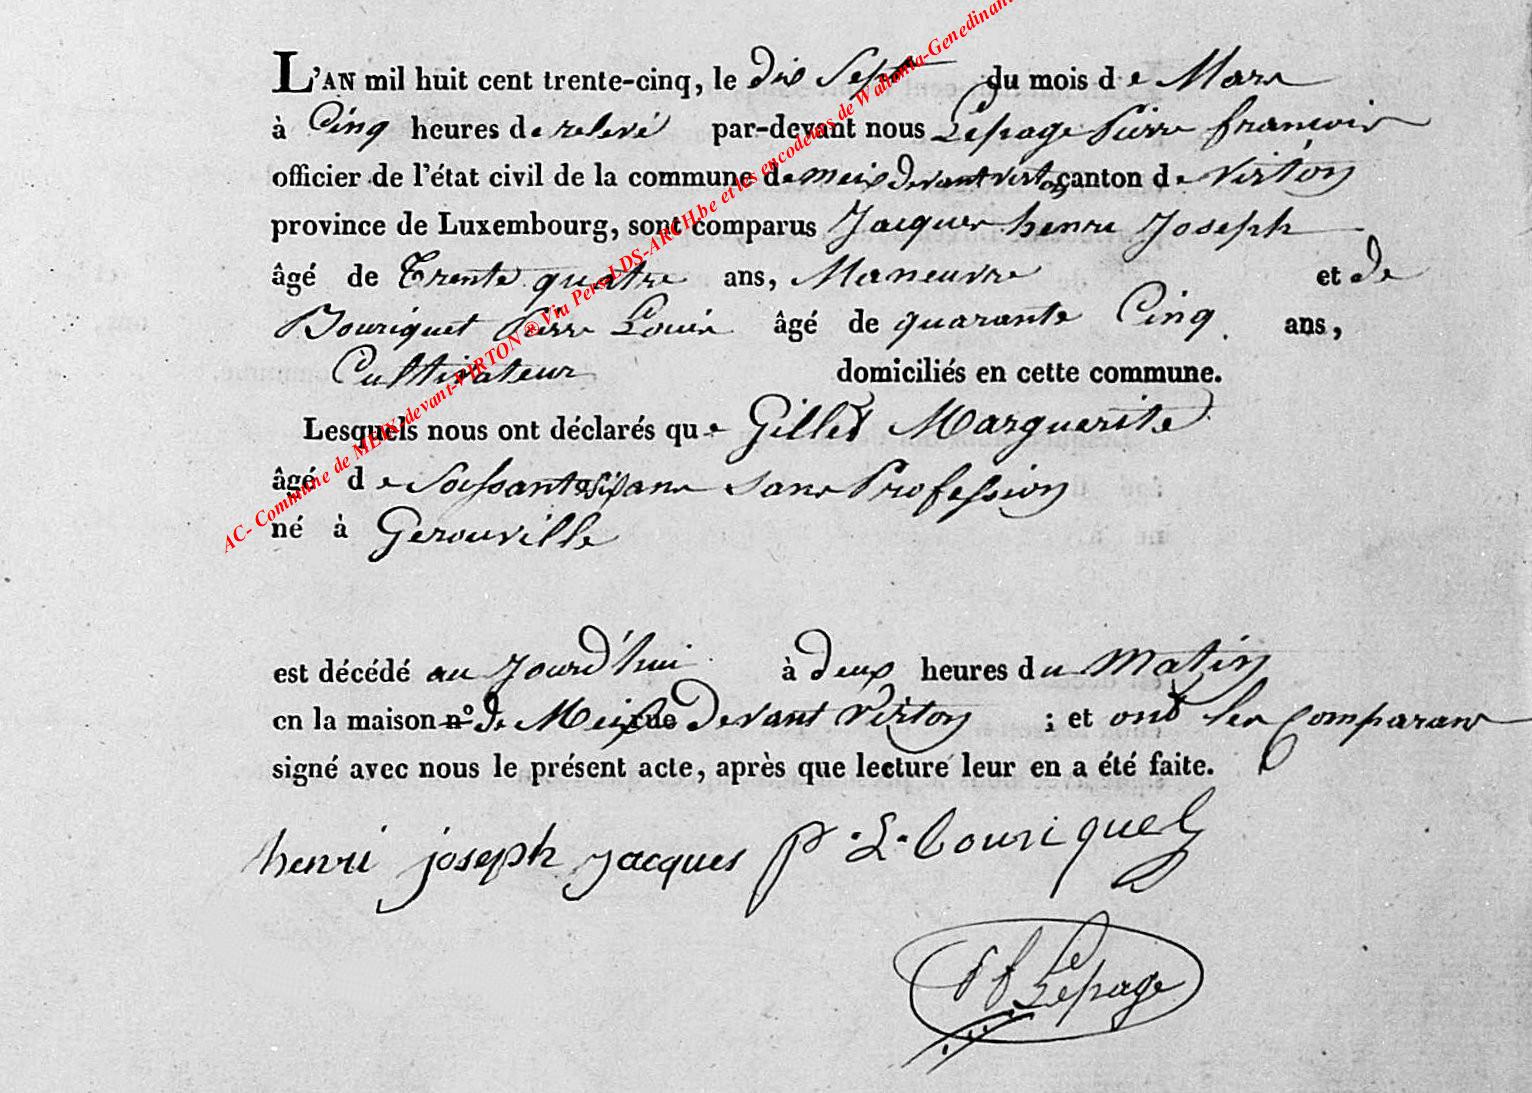 L'AN mil huit cent trente-cinq, le dix Sept du mois de Mars
à Cinq heures de relevé par-devant nous Lepage Pierre françois
officier de l'état civil de la commune de meix devant virton canton de virton
province de Luxembourg, sont comparus Jacques henri Joseph
âgé de Trente quatre ans, Maneuvre et de
Bouriquet Pierre Louis âgé de quarante Cinq ans,
Cultivateur domiciliés en cette commune.
Lesquels nous ont déclarés que Gillet Marguerite
âgé de Soissante six ans sans Profession
né à Gerouville
est décédé au Jourd'hui à deux heures du Matin
en la maison n° de Meix rue Devant Virton ; et ont les Comparans
signé avec nous le présent acte, après que lecture leur en a été faite.
henri joseph jacques P. L. Bouriquet
P f Lepage
AC- Commune de MEIX-devant-VIRTON ® Via Pers LDS-ARCH.be et les encodeurs de Wallonia-Genedinant